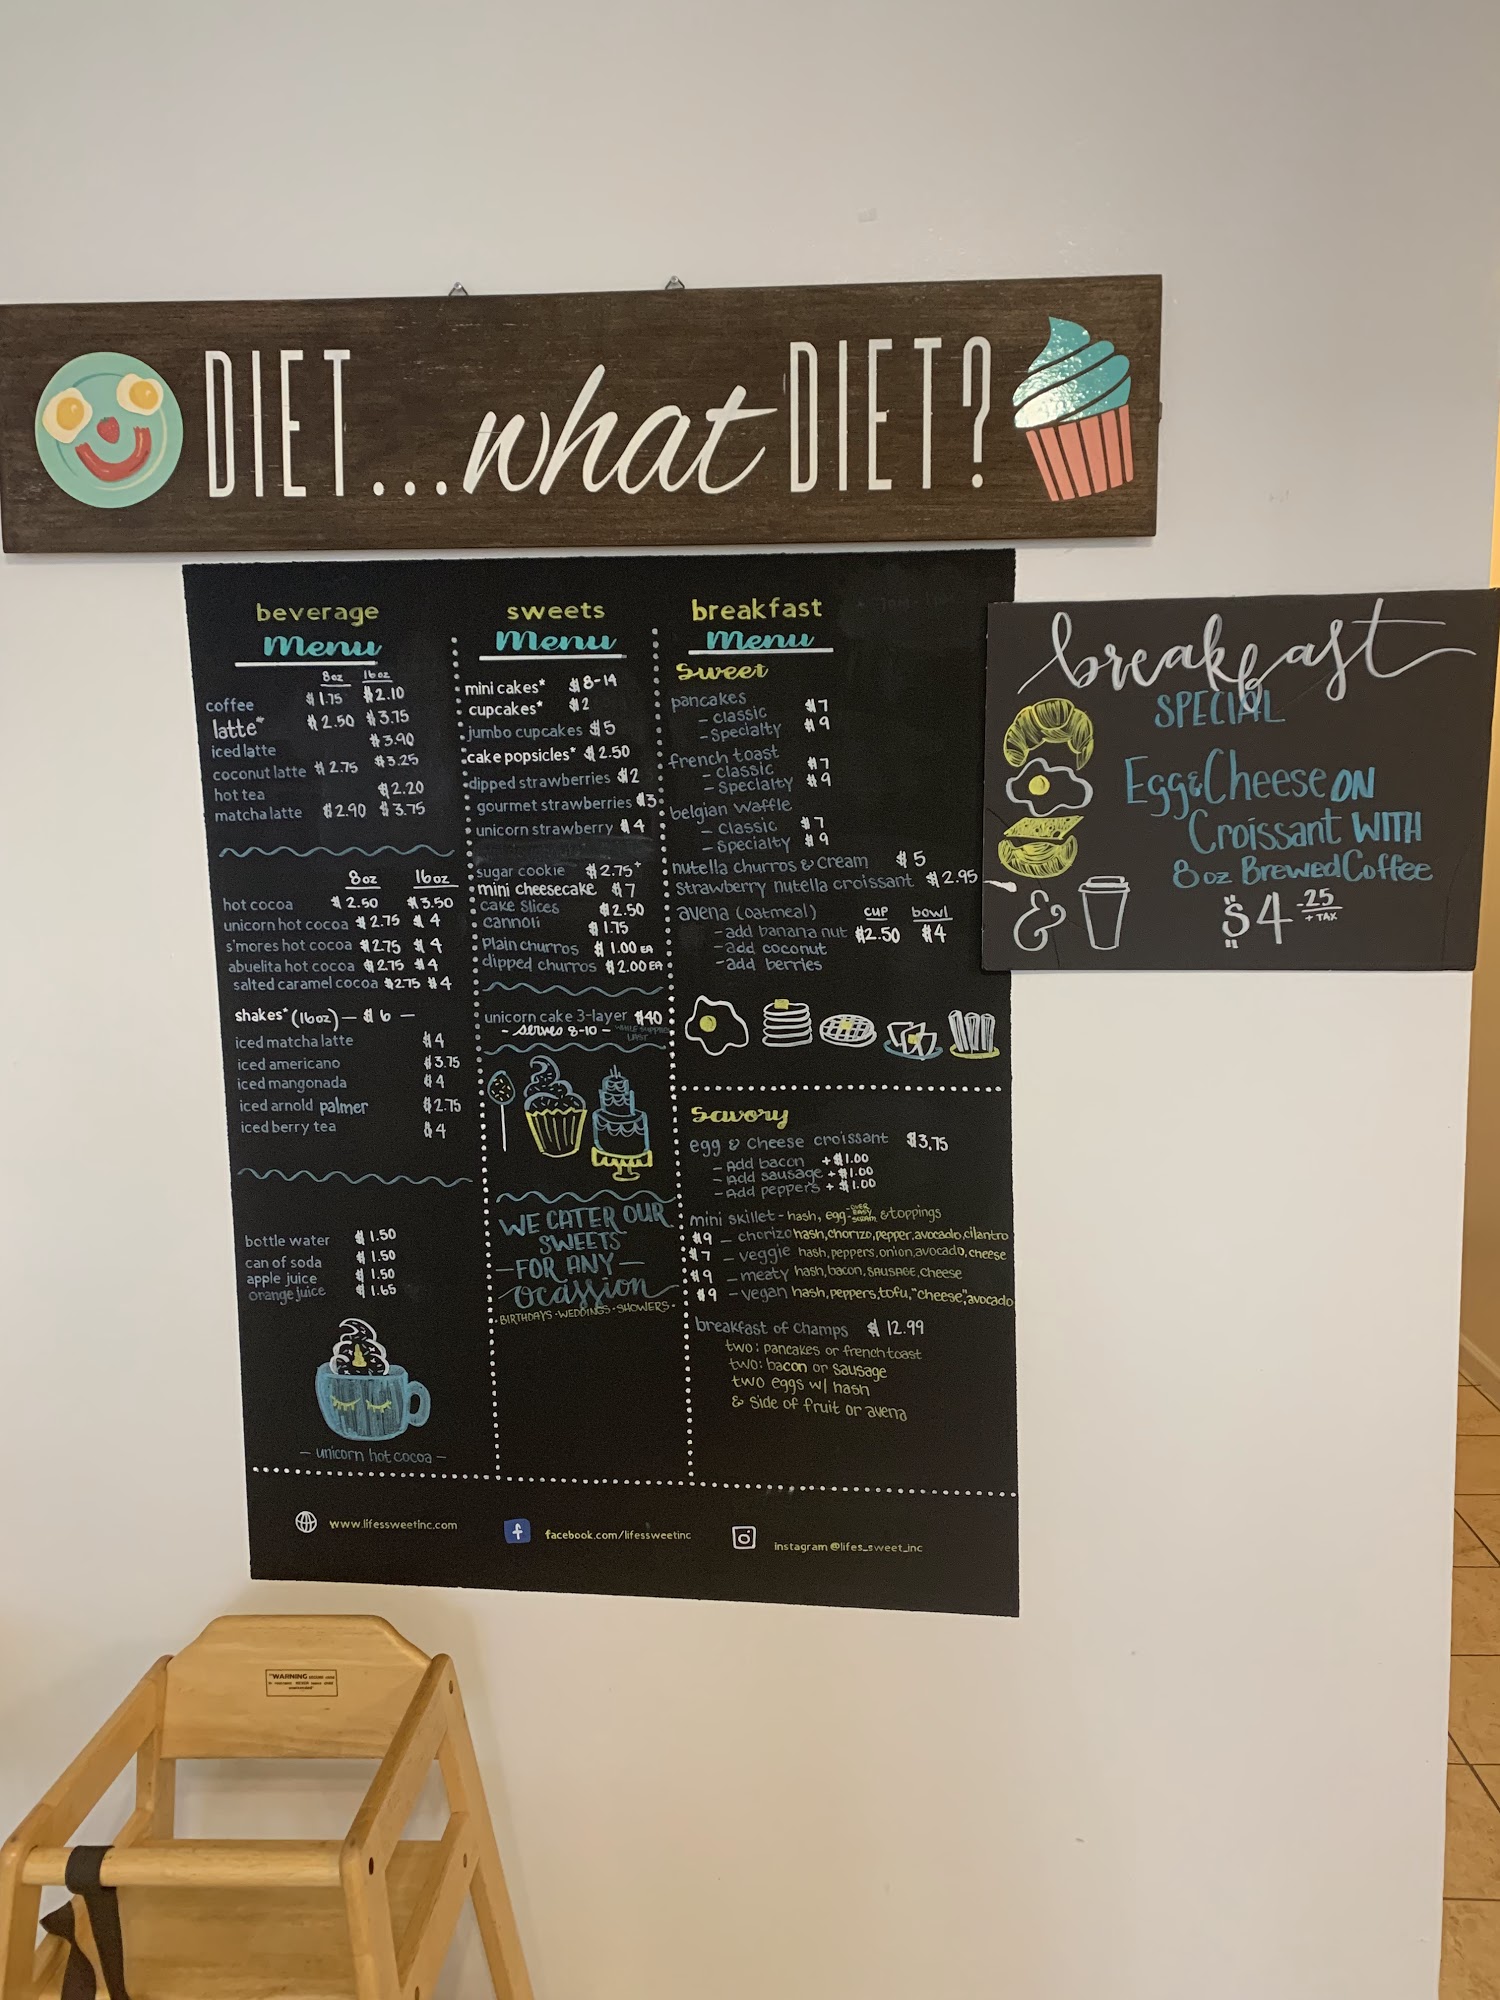 DIET...what DIET?
beverage
Menu
8oz 16oz
coffee $1.75 $2.10
latte* $2.50 $3.75
iced latte $3.90
coconut latte $2.75 $3.25
hot tea $2.20
matcha latte $2.90 $3.75
8oz 16oz
hot cocoa $2.50 $3.50
unicorn hot cocoa $2.75 $4
s'mores hot cocoa $2.75 $4
abuelita hot cocoa $2.75 $4
salted caramel cocoa $2.75 $4
shakes* (16oz) — $6 —
iced matcha latte $4
iced americano $3.75
iced mangonada $4
iced arnold palmer $2.75
iced berry tea $4
bottle water $1.50
can of soda $1.50
apple juice $1.50
orange juice $1.65
- unicorn hot cocoa -
sweets
Menu
mini cakes* $8-14
cupcakes* $2
jumbo cupcakes $5
cake popsicles* $2.50
dipped strawberries $2
gourmet strawberries $3
unicorn strawberry $4
sugar cookie $2.75+
mini cheesecake $7
cake slices $2.50
cannoli $1.75
Plain churros $1.00 EA
dipped churros $2.00 EA
unicorn cake 3-layer $40
- serves 8-10 - WHILE SUPPLIES LAST
WE CATER OUR
SWEETS
- FOR ANY -
ocassion
BIRTHDAYS · WEDDINGS · SHOWERS ·
breakfast
Menu
sweet
pancakes
- classic $7
- Specialty $9
french toast
- classic $7
- Specialty $9
belgian waffle
- Classic $7
- Specialty $9
nutella churros & cream $5
strawberry nutella croissant $2.95
avena (oatmeal) cup bowl
- add banana nut $2.50 $4
- add coconut
- add berries
savory
egg & Cheese croissant $3.75
- Add bacon + $1.00
- Add sausage + $1.00
- Add peppers + $1.00
mini skillet - hash, egg - OVER EASY SCRAM & toppings
$9 - chorizo hash, chorizo, pepper, avocado, cilantro
$7 - veggie hash, peppers, onion, avocado, cheese
$9 - meaty hash, bacon, SAUSAGE, cheese
$9 - vegan hash, peppers, tofu, "cheese", avocado
breakfast of Champs $12.99
two: pancakes or french toast
two: bacon or sausage
two eggs w/ hash
& side of fruit or avena
www.lifessweetinc.com
facebook.com/lifessweetinc
instagram @lifes_sweet_inc
breakfast
SPECIAL
Egg & Cheese ON
Croissant WITH
8oz Brewed Coffee
& $4.25
+ TAX
"WARNING